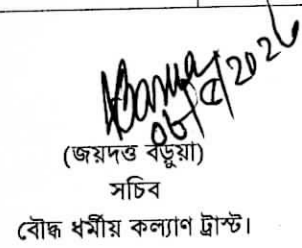 ০৮/৫/2026
(জয়দত্ত বড়ুয়া)
সচিব
বৌদ্ধ ধর্মীয় কল্যাণ ট্রাস্ট।